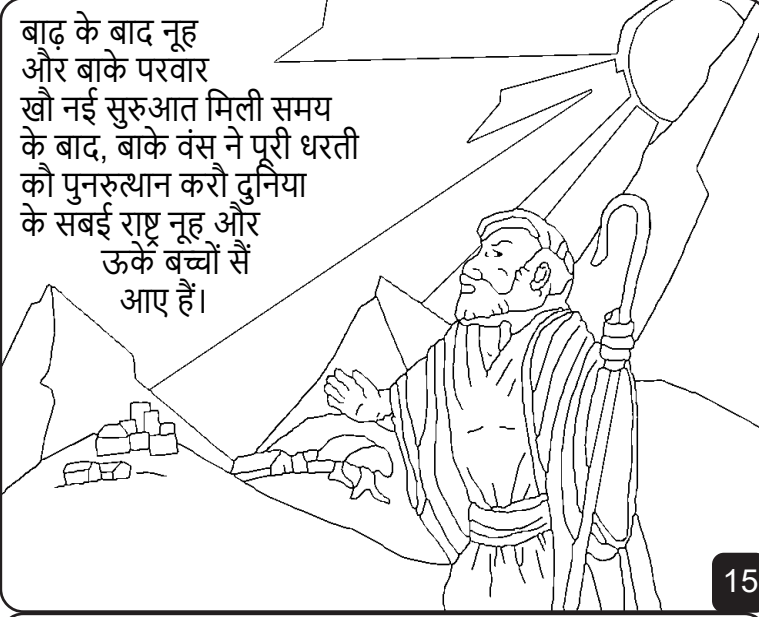 बाढ़ के बाद नूह
और बाके परवार
खौ नई सुरुआत मिली समय
के बाद, बाके वंस ने पूरी धरती
कौ पुनरुत्थान करौ दुनिया
के सबई राष्ट्र नूह और
ऊके बच्चों सैं
आए हैं।
15